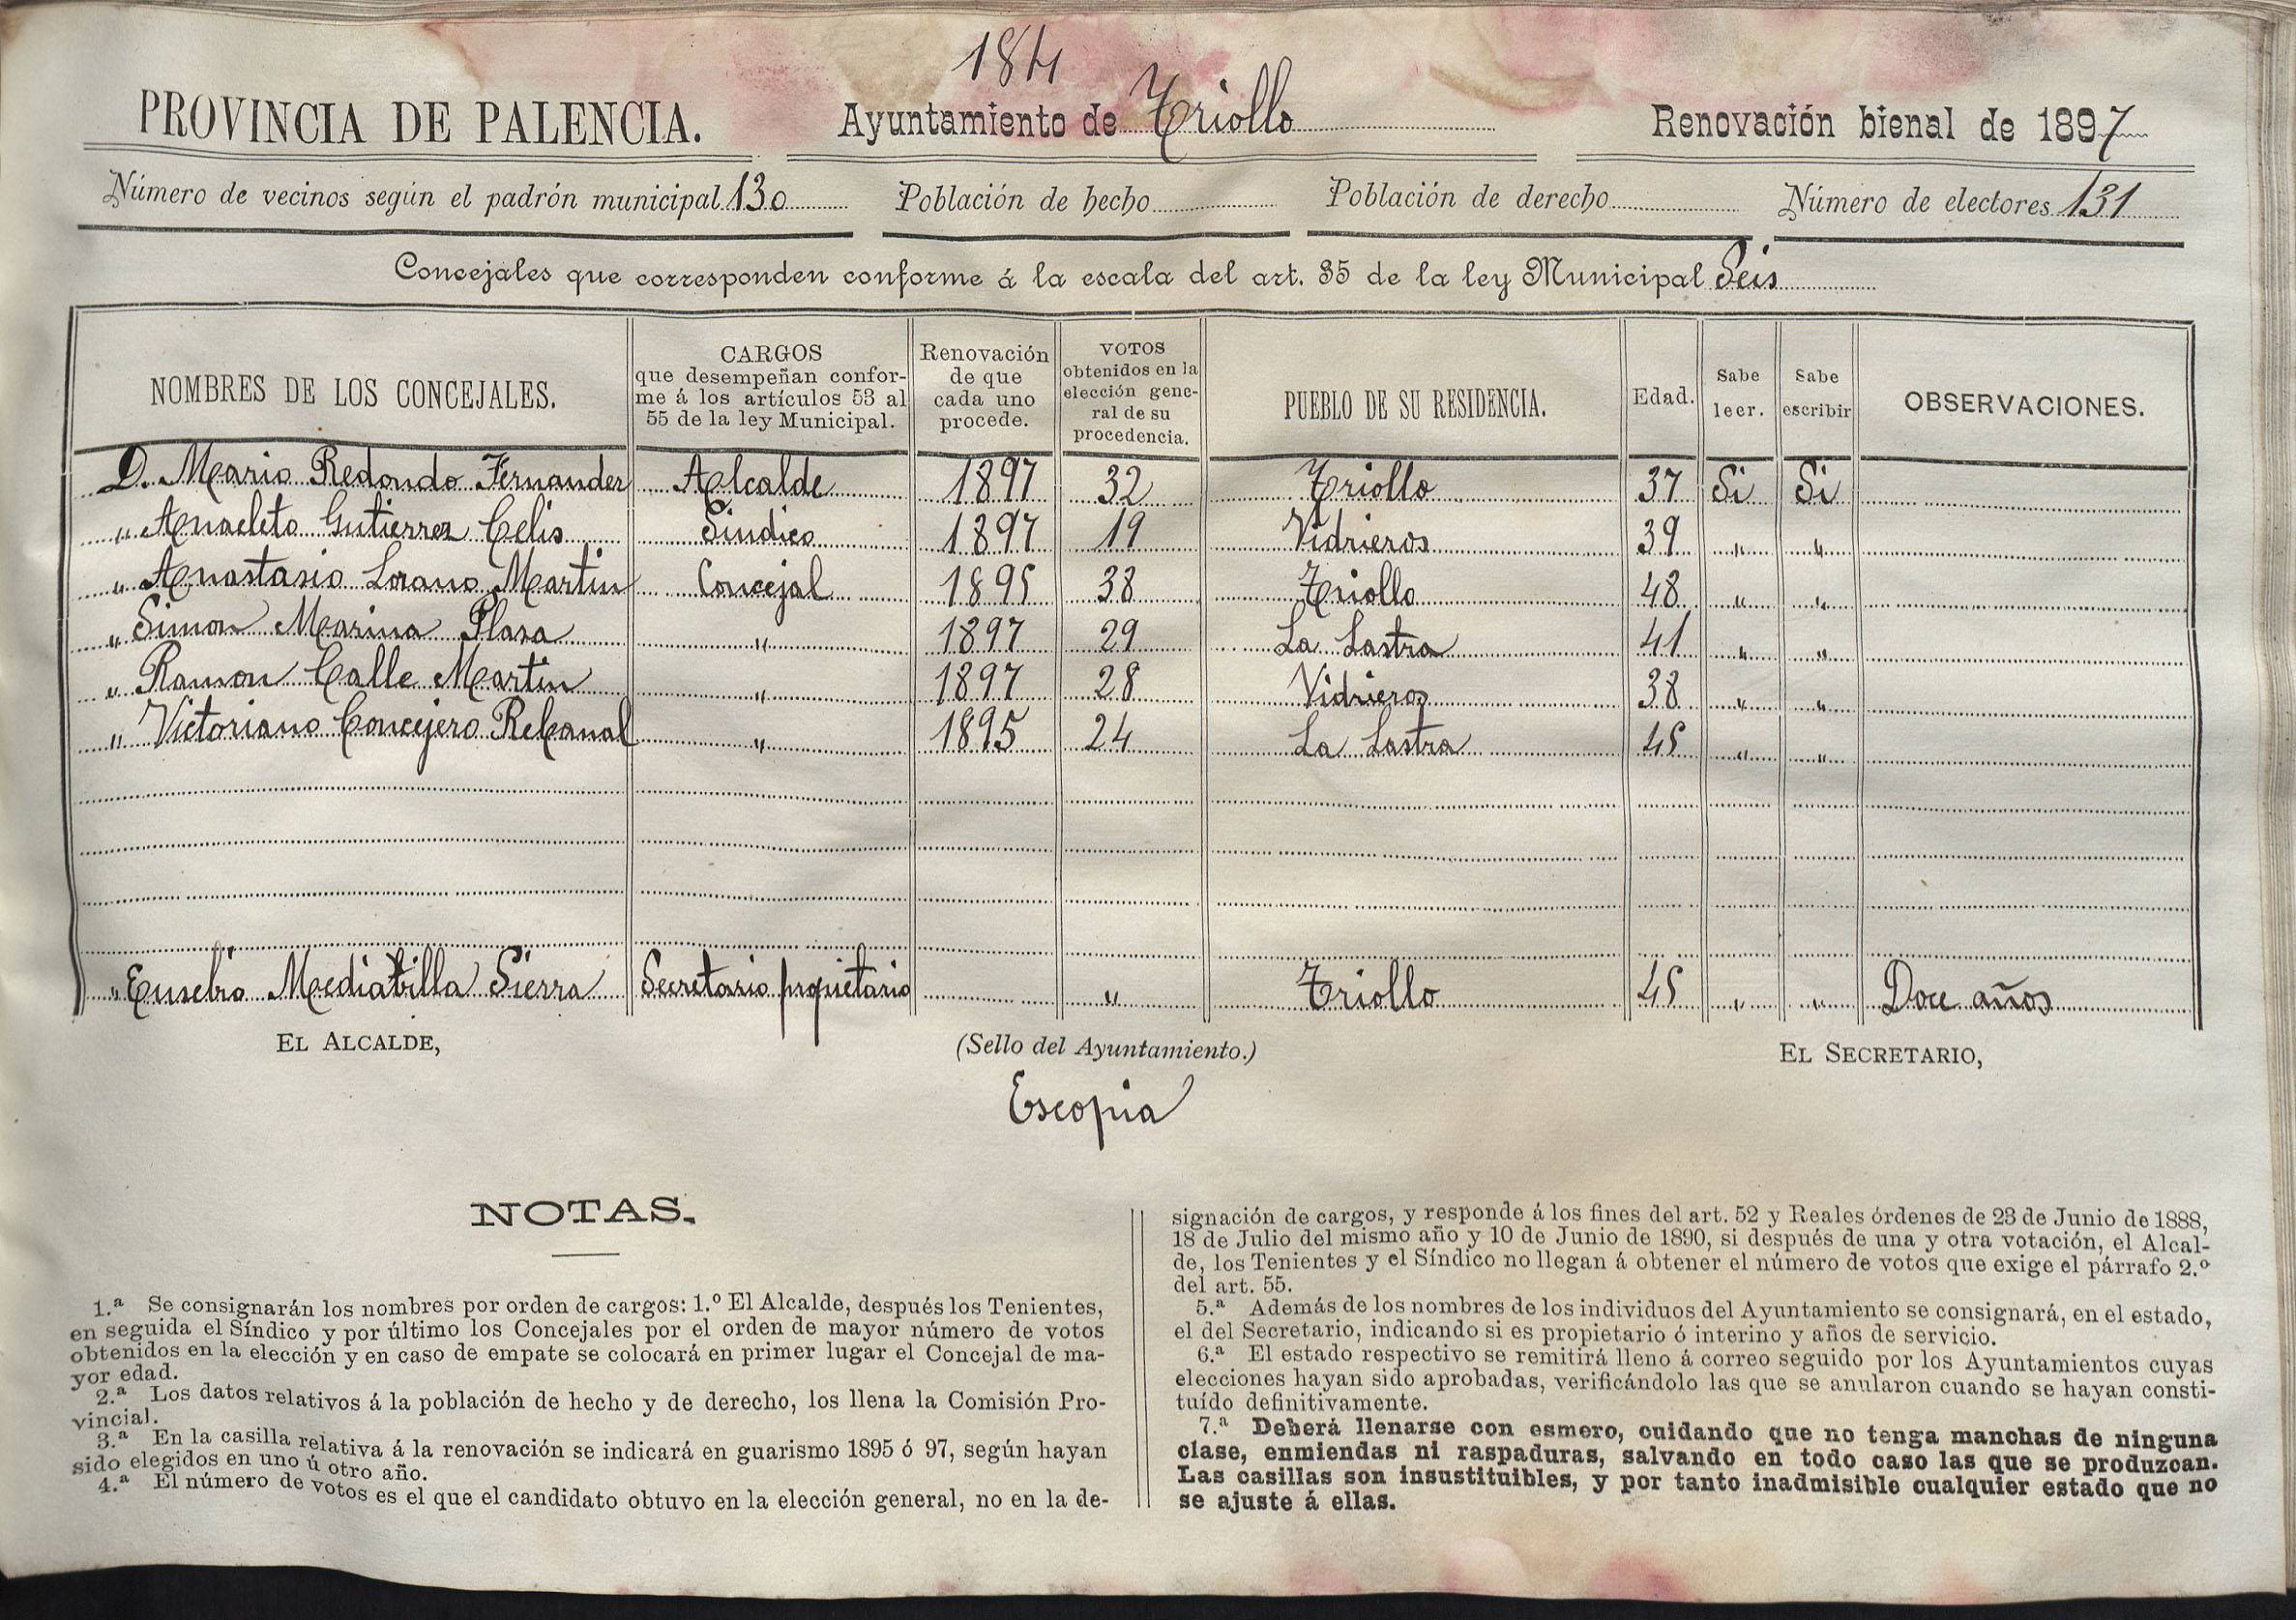 184
PROVINCIA DE PALENCIA. Ayuntamiento de Triollo Renovación bienal de 1897
Número de vecinos según el padrón municipal 130 Población de hecho Población de derecho Número de electores 131
Concejales que corresponden conforme á la escala del art. 35 de la ley Municipal Seis
NOMBRES DE LOS CONCEJALES.
CARGOS
que desempeñan confor-
me á los artículos 53 al
55 de la ley Municipal.
Renovación
de que
cada uno
procede.
VOTOS
obtenidos en la
elección gene-
ral de su
procedencia.
PUEBLO DE SU RESIDENCIA.
Edad.
Sabe
leer.
Sabe
escribir
OBSERVACIONES.
D. Mario Redondo Fernander Alcalde 1897 32 Triollo 37 Si Si
" Anacleto Gutierrez Celis Sindico 1897 19 Vidrieros 39 " "
" Anastasio Lorano Martin Concejal 1895 38 Triollo 48 " "
" Simon Marina Plasa " 1897 29 La Lastra 41 " "
" Ramon Calle Martin " 1897 28 Vidrieros 38 " "
" Victoriano Concejero Rebanal " 1895 24 La Lastra 45 " "
" Eusebio Mediabilla Sierra Secretario propietario " Triollo 45 " " Doce años
EL ALCALDE, (Sello del Ayuntamiento.) EL SECRETARIO,
Es copia
NOTAS.
1.ª Se consignarán los nombres por orden de cargos: 1.º El Alcalde, después los Tenientes,
en seguida el Síndico y por último los Concejales por el orden de mayor número de votos
obtenidos en la elección y en caso de empate se colocará en primer lugar el Concejal de ma-
yor edad.
2.ª Los datos relativos á la población de hecho y de derecho, los llena la Comisión Pro-
vincial.
3.ª En la casilla relativa á la renovación se indicará en guarismo 1895 ó 97, según hayan
sido elegidos en uno ú otro año.
4.ª El número de votos es el que el candidato obtuvo en la elección general, no en la de-
signación de cargos, y responde á los fines del art. 52 y Reales órdenes de 23 de Junio de 1888,
18 de Julio del mismo año y 10 de Junio de 1890, si después de una y otra votación, el Alcal-
de, los Tenientes y el Síndico no llegan á obtener el número de votos que exige el párrafo 2.º
del art. 55.
5.ª Además de los nombres de los individuos del Ayuntamiento se consignará, en el estado,
el del Secretario, indicando si es propietario ó interino y años de servicio.
6.ª El estado respectivo se remitirá lleno á correo seguido por los Ayuntamientos cuyas
elecciones hayan sido aprobadas, verificándolo las que se anularon cuando se hayan consti-
tuído definitivamente.
7.ª Deberá llenarse con esmero, cuidando que no tenga manchas de ninguna
clase, enmiendas ni raspaduras, salvando en todo caso las que se produzcan.
Las casillas son insustituibles, y por tanto inadmisible cualquier estado que no
se ajuste á ellas.